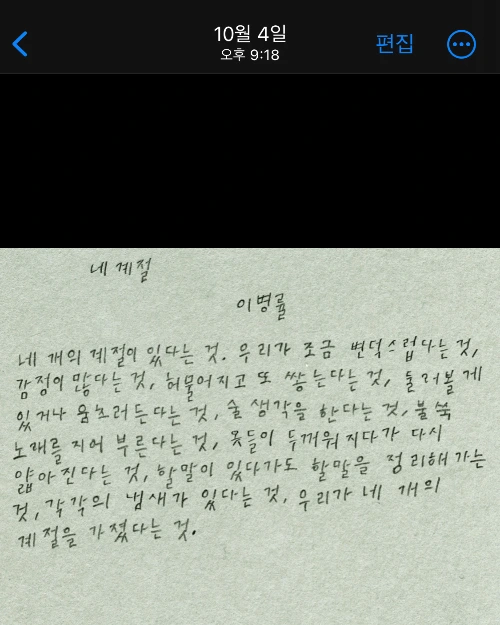 10월 4일
편집
오후 9:18
네 계절
이병률
네 개의 계절이 있다는 것. 우리가 조금 변덕스럽다는 것,
감정이 많다는 것, 허물어지고 또 쌓는다는 것, 둘러볼 게
있거나 움츠러든다는 것, 술 생각을 한다는 것, 불쑥
노래를 지어 부른다는 것, 옷들이 두꺼워지다가 다시
얇아진다는 것, 할말이 있다가도 할말을 정리해가는
것, 각각의 냄새가 있다는 것, 우리가 네 개의
계절을 가졌다는 것.